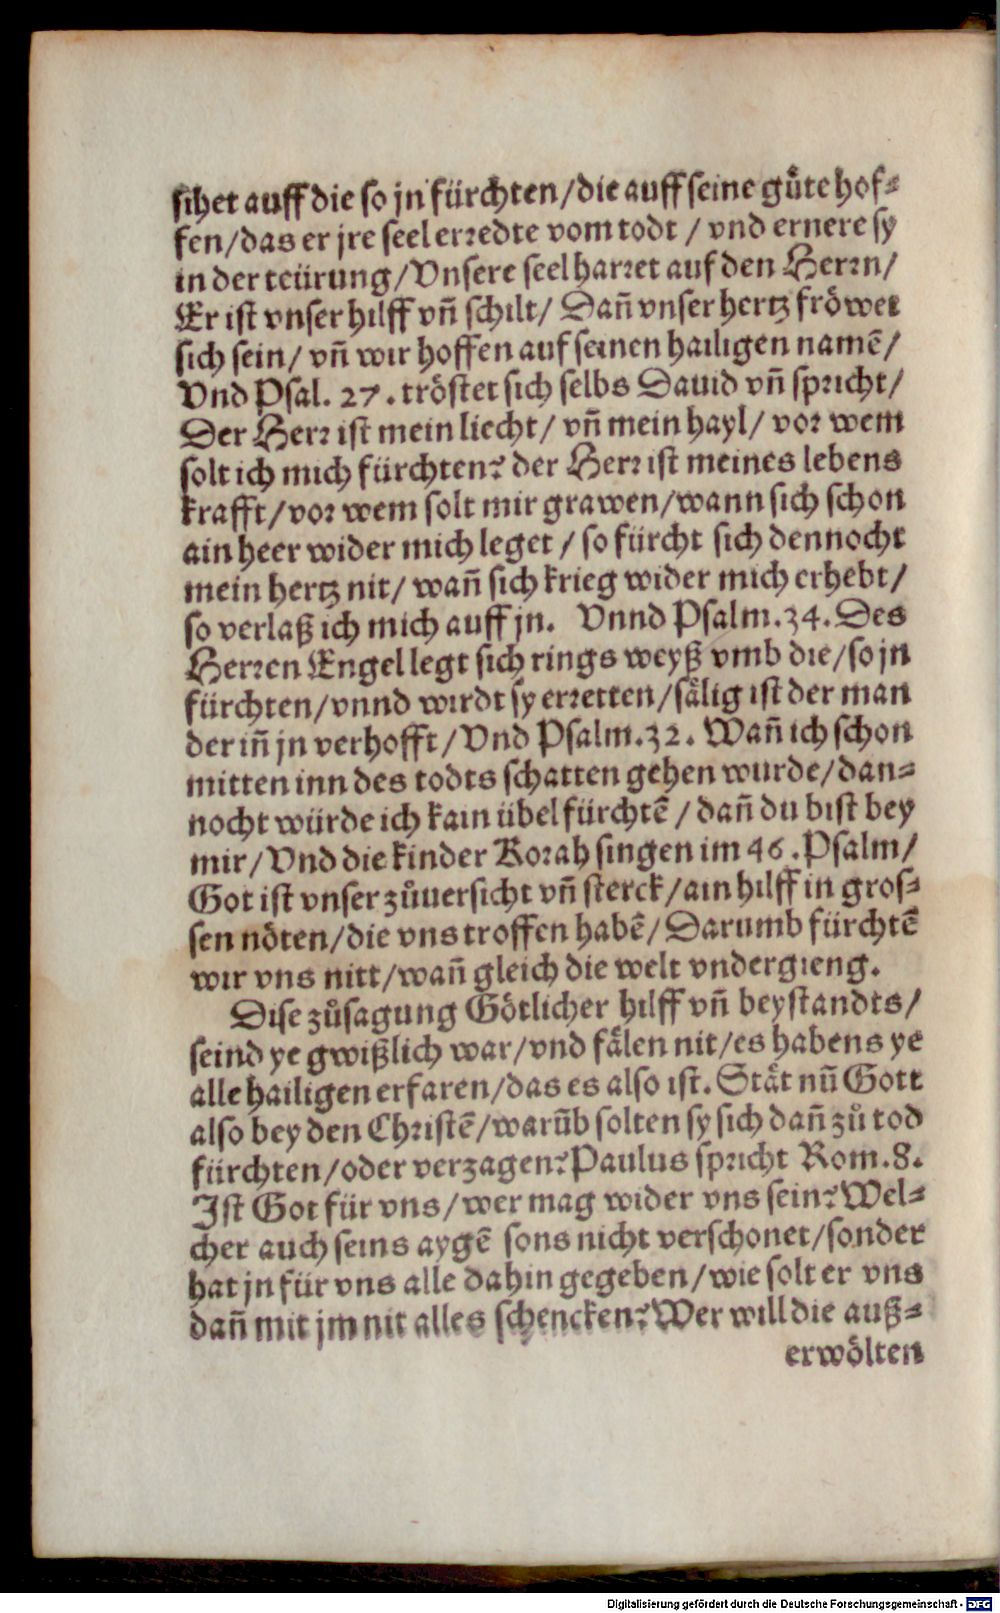 sihet auff die so jn fürchten/die auff seine gůte hof-
fen/das er jre seel erredte vom todt / vnd ernere sy
in der teürung/Vnsere seel harret auf den Herrn/
Er ist vnser hilff vñ schilt/ Dañ vnser hertz fröwet
sich sein/ vñ wir hoffen auf seinen hailigen namẽ/
Vnd Psal. 27. tröstet sich selbs Dauid vñ spricht/
Der Herr ist mein liecht/ vñ mein hayl/ vor wem
solt ich mich fürchten? der Herr ist meines lebens
krafft/vor wem solt mir grawen/wann sich schon
ain heer wider mich leget / so fürcht sich dennocht
mein hertz nit/ wañ sich krieg wider mich erhebt/
so verlaß ich mich auff jn. Vnnd Psalm.34. Des
Herren Engel legt sich rings weyß vmb die/so jn
fürchten/vnnd wirdt sy erretten/sälig ist der man
der iñ jn verhofft/Vnd Psalm.32. Wañ ich schon
mitten inn des todts schatten gehen wurde/dan-
nocht würde ich kain übel fürchtẽ / dañ du bist bey
mir/Vnd die kinder Korah singen im 46. Psalm/
Got ist vnser zůuersicht vñ sterck/ain hilff in gros-
sen nöten/die vns troffen habẽ/Darumb fürchtẽ
wir vns nitt/wañ gleich die welt vndergieng.
Dise zůsagung Götlicher hilff vñ beystandts/
seind ye gwißlich war/vnd fälen nit/es habens ye
alle hailigen erfaren/das es also ist. Stät nũ Gott
also bey den Christẽ/warũb solten sy sich dañ zů tod
fürchten/oder verzagen? Paulus spricht Rom.8.
Ist Got für vns/wer mag wider vns sein? Wel-
cher auch seins aygẽ sons nicht verschonet/sonder
hat jn für vns alle dahin gegeben/wie solt er vns
dañ mit jm nit alles schencken? Wer will die auß-
erwölten
Digitalisierung gefördert durch die Deutsche Forschungsgemeinschaft - DFG